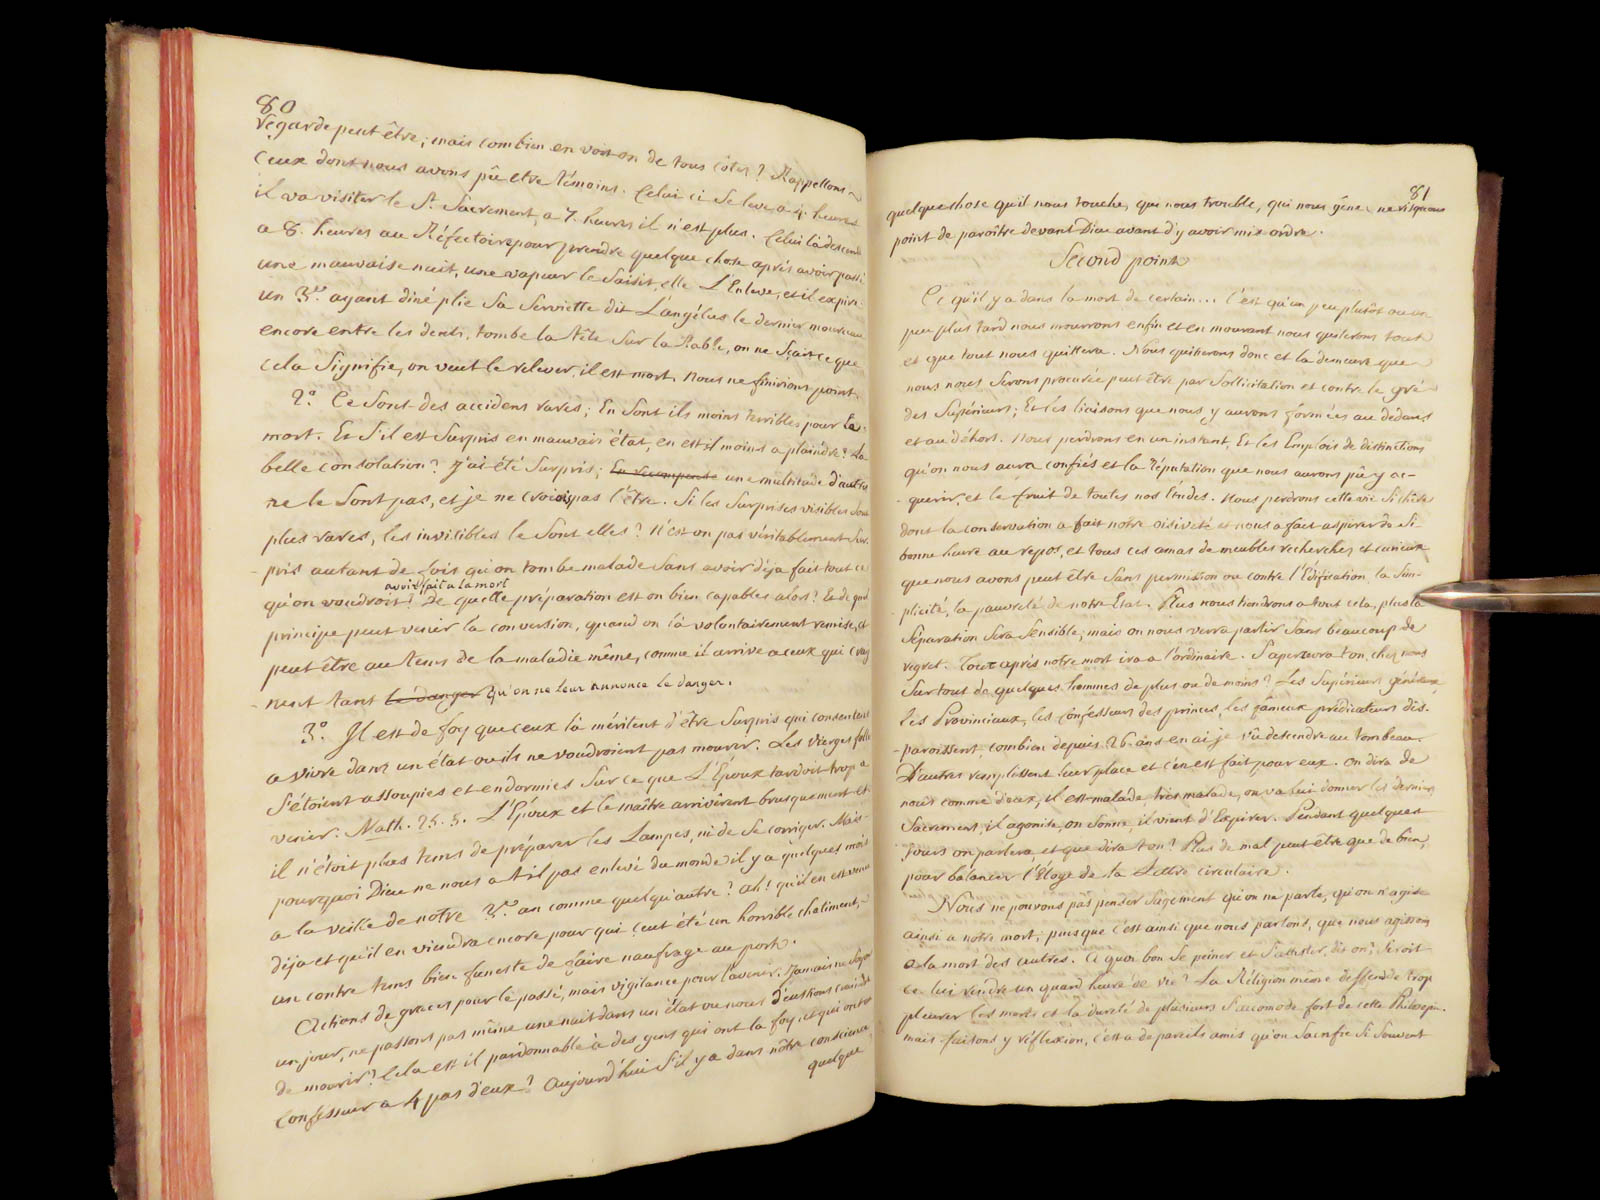 80
regarde peut être; mais combien en voit on de tous côtes? Rappellons
Ceux dont nous avons pû etre témoins. Celui ci se leve a 4. heures
il va visiter le St. Sacrement, a 7. heures il n'est plus. Celui là descend
a 8. heures au Réfectoire pour prendre quelque chose aprés avoir passé
une mauvaise nuit, une vapeur le saisit, elle L'Enleve, et il expire.
un 3e. ayant diné plie sa serviette dit L'angélus le dernier morceau
encore entre les dents, tombe la tête sur la table, on ne sçait ce que
cela signifie, on veut le relever, il est mort. nous ne finirions point.
2°. Ce sont des accidens rares; En sont ils moins terribles pour la
mort. Et s'il est surpris en mauvais état, en est il moins a plaindre? La
belle consolation? j'ai été surpris; En recompense une multitude d'autres
ne le sont pas, et je ne croiois pas l'être. Si les surprises visibles sont
plus rares, les invisibles le sont elles? n'est on pas véritablement sur-
- pris autant de fois qu'on tombe malade sans avoir déja fait tout ce
avoir fait a la mort
qu'on voudroit? De quelle préparation est on bien capables alors? Et de quel
principe peut venir la conversion, quand on l'a volontairement remise, et
peut être au tems de la maladie même, comme il arrive a ceux qui crai
- nent tant le danger qu'on ne leur annonce le danger.
3°. Il est de foy que ceux là méritent d'être surpris qui consentent
a vivre dans un état ou ils ne voudroient pas mourir. Les vierges folles
s'étoient assoupies et endormies sur ce que L'Époux tardoit trop a
venir. Math. 25. 5. L'Époux et le maître arrivèrent brusquement et
il n'étoit plus tems de préparer les Lampes, ni de se corriger. Mais
pourquoi Dieu ne nous a t-il pas enlevé du monde il y a quelques mois
a la veille de notre 3e. an comme quelqu'autre? Ah! qu'il en est venu
déja et qu'il en viendra encore pour qui c'eut été un horrible chatiment,
un contre tems bien funeste de faire naufrage au port.
Actions de graces pour le passé, mais vigilance pour l'avenir. Jamais ne soyons
un jour, ne passons pas même une nuit dans un état ou nous d'eussions craindre
de mourir? Cela est il pardonnable à des gens qui ont la foy, et qui ont un
Confesseur a 4 pas d'eux? Aujourd'hui s'il y a dans nôtre conscience
quelque
81
quelque chose qu'il nous touche, qui nous trouble, qui nous gêne, ne risquons
point de paroître devant Dieu avant d'y avoir mis ordre.
Second point
Ce qu'il y a dans la mort de certain... C'est qu'un peu plutôt ou un
peu plus tard nous mourrons enfin et en mourant nous quiterons tout
et que tout nous quittera. Nous quitterons donc et la demeure que
nous nous serons procurée peut être par sollicitation et contre le gré
des Supérieurs; Et les liaisons que nous y aurons formées au dedans
et au déhors. Nous perdrons en un instant, Et les Emplois de distinctions
qu'on nous aura confiés et la réputation que nous aurons pû y ac-
- querir, et le fruit de toutes nos études. Nous perdrons cette vie si chère
dont la conservation a fait notre oisiveté et nous a fait aspirer de si
bonne heure au repos, et tous ces amas de meubles recherchés et curieux
que nous avons peut être sans permission ou contre l'Edification, la sim-
- plicité, la pauvreté de notre Etat. Plus nous tiendrons a tout cela, plus la
séparation sera sensible, mais on nous verra partir sans beaucoup de
regret. Tout aprés notre mort ira a l'ordinaire. S'apercevra t'on chez nous
sur tout de quelques hommes de plus ou de moins? Les Supérieurs généraux,
les Provinciaux, les Confesseurs des princes, les fameux prédicateurs dis-
- paroissent, combien depuis 26 ans en ai je vû descendre au tombeau.
D'autres remplissent leur place et c'en est fait pour eux. On dira de
nous comme d'eux, il est malade, très malade, on va lui donner les derniers
Sacrement, il agonise, on sonne, il vient d'Expirer. Pendant quelques
jours on parlera, et que dira t'on? Plus de mal peut être que de bien,
pour balancer l'éloge de la Lettre circulaire.
Nous ne pouvons pas penser sagement qu'on ne parle, qu'on n'agisse
ainsi a notre mort, puisque c'est ainsi que nous parlons, que nous agissons
a la mort des autres. A quoi bon se peiner et s'attrister, dit on, seroit
ce lui rendre un quard heure de vie? La Réligion même deffend de trop
pleurer les morts et la dureté de plusieurs s'accomode fort de cette Philosophie.
mais faisons y réflexion, c'est a de pareils amis qu'on sacrifie si souvent